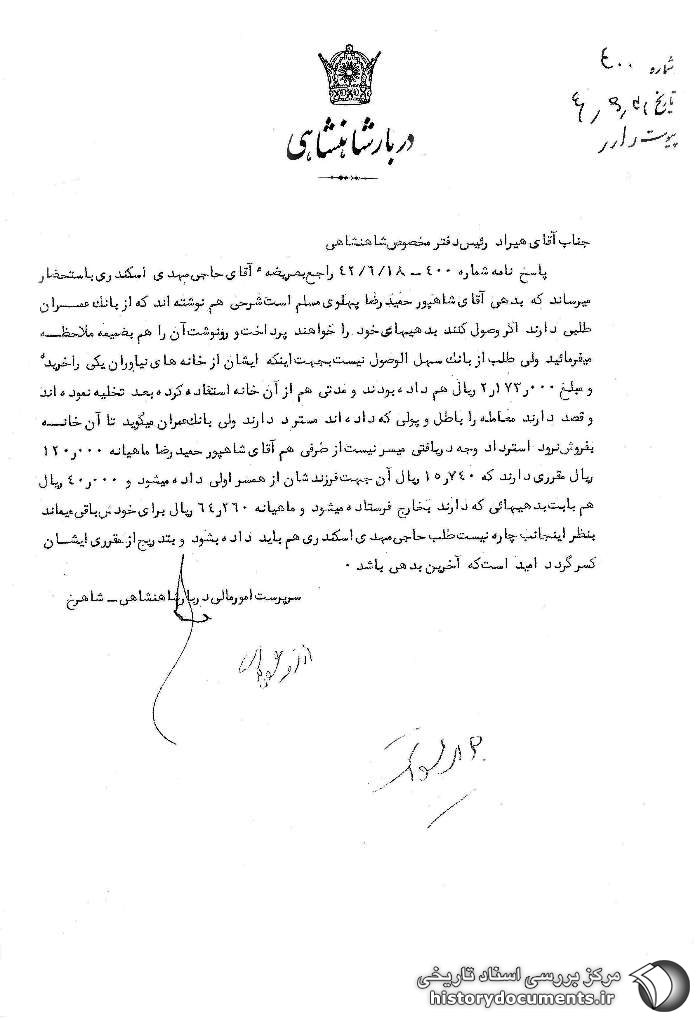 شماره ٤٠٠
تاریخ
پیوست دارد
دربار شاهنشاهی
جناب آقای هیراد رئیس دفتر مخصوص شاهنشاهی
پاسخ نامه شماره ٤٠٠ – ٤٢/٦/١٨ راجع بعریضه ٔ آقای حاجی مهدی اسکندری باستحضار
میرساند که بدهی آقای شاهپور حمید رضا پهلوی مسلم است شرحی هم نوشته اند که از بانک عمران
طلبی دارند اگر وصول کنند بدهیهای خود را خواهند پرداخت و رونوشت آن را هم بضمیمه ملاحظه
میفرمائید ولی طلب از بانک سهل الوصول نیست بجهت اینکه ایشان از خانه های نیاوران یکی را خریده
و مبلغ ٢٫١٧٣٫٠٠٠ ریال هم داده بودند و مدتی هم از آن خانه استفاده کرده بعد تخلیه نموده اند
و قصد دارند معامله را باطل و پولی که داده اند مسترد دارند ولی بانک عمران میگوید تا آن خانه
بفروش نرود استرداد وجه دریافتی میسر نیست از طرفی هم آقای شاهپور حمید رضا ماهیانه ١٢٠٫٠٠٠
ریال مقرری دارند که ١٥٫٧٤٠ ریال آن جهت فرزندشان از همسر اولی داده میشود و ٤٠٫٠٠٠ ریال
هم بابت بدهیهائی که دارند بخارج فرستاده میشود و ماهیانه ٦٤٫٢٦٠ ریال برای خودش باقی میماند
بنظر اینجانب چاره نیست طلب حاجی مهدی اسکندری هم باید داده بشود و بتدریج از مقرری ایشان
کسر گردد امید است که آخرین بدهی باشد ٠
سرپرست امور مالی دربار شاهنشاهی – شاهرخ
مرکز بررسی اسناد تاریخی
historydocuments.ir